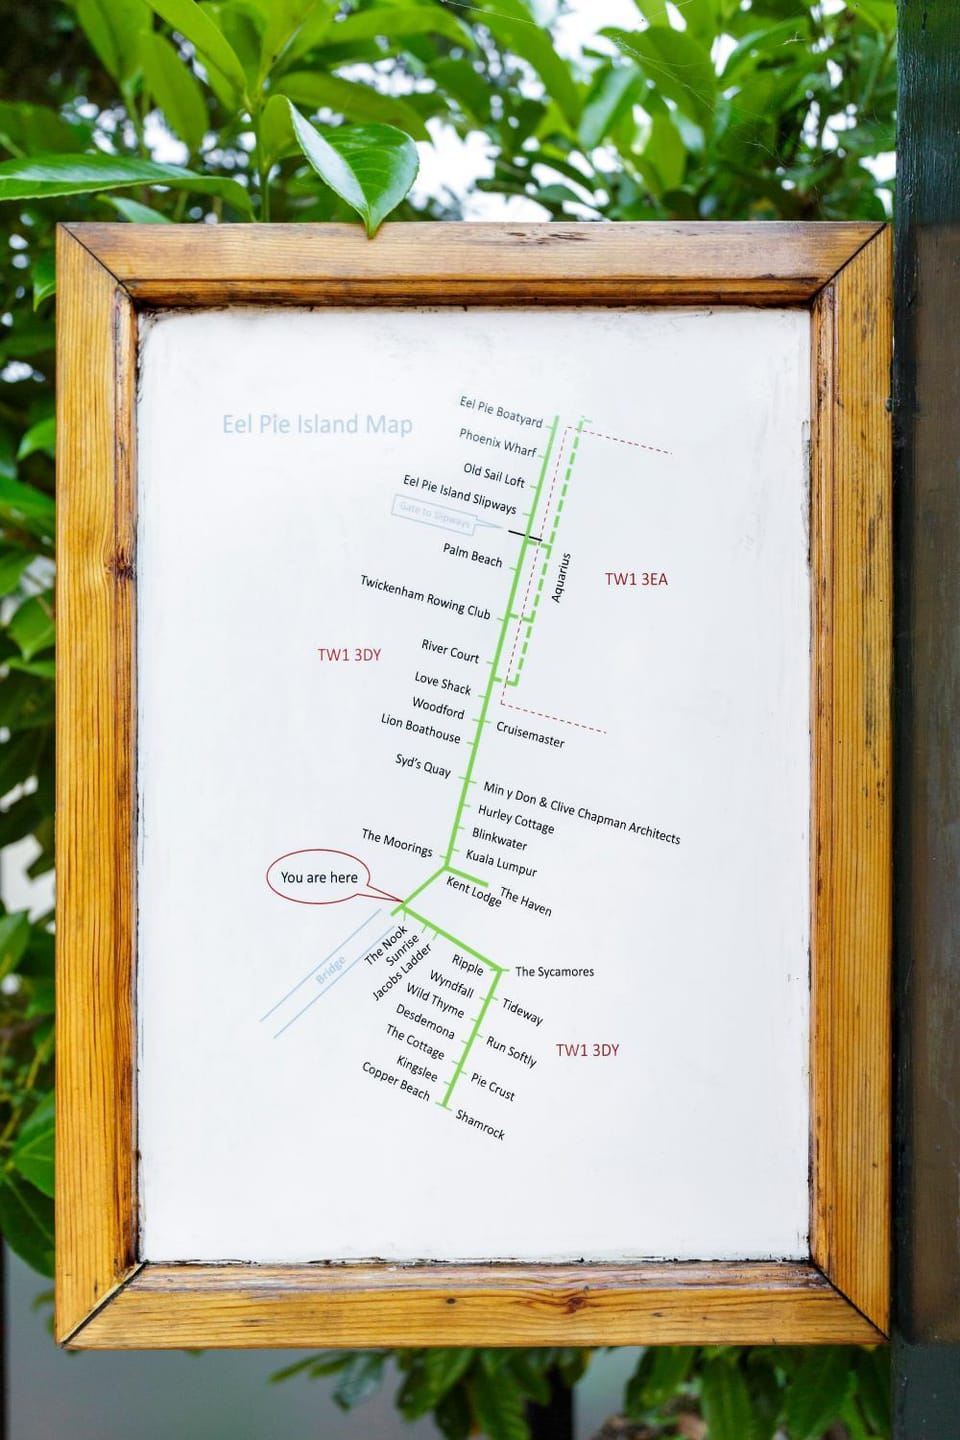 Eel Pie Island Map
Eel Pie Boatyard
Phoenix Wharf
Old Sail Loft
Eel Pie Island Slipways
Gate to Slipways
Palm Beach
Aquarius
TW1 3EA
Twickenham Rowing Club
TW1 3DY
River Court
Love Shack
Woodford
Cruisemaster
Lion Boathouse
Syd's Quay
Min y Don & Clive Chapman Architects
Hurley Cottage
Blinkwater
The Moorings
Kuala Lumpur
You are here
Kent Lodge
The Haven
The Nook
Sunrise
Jacobs Ladder
Bridge
Ripple
The Sycamores
Wyndfall
Tideway
Wild Thyme
Desdemona
Run Softly
TW1 3DY
The Cottage
Kingslee
Pie Crust
Copper Beach
Shamrock